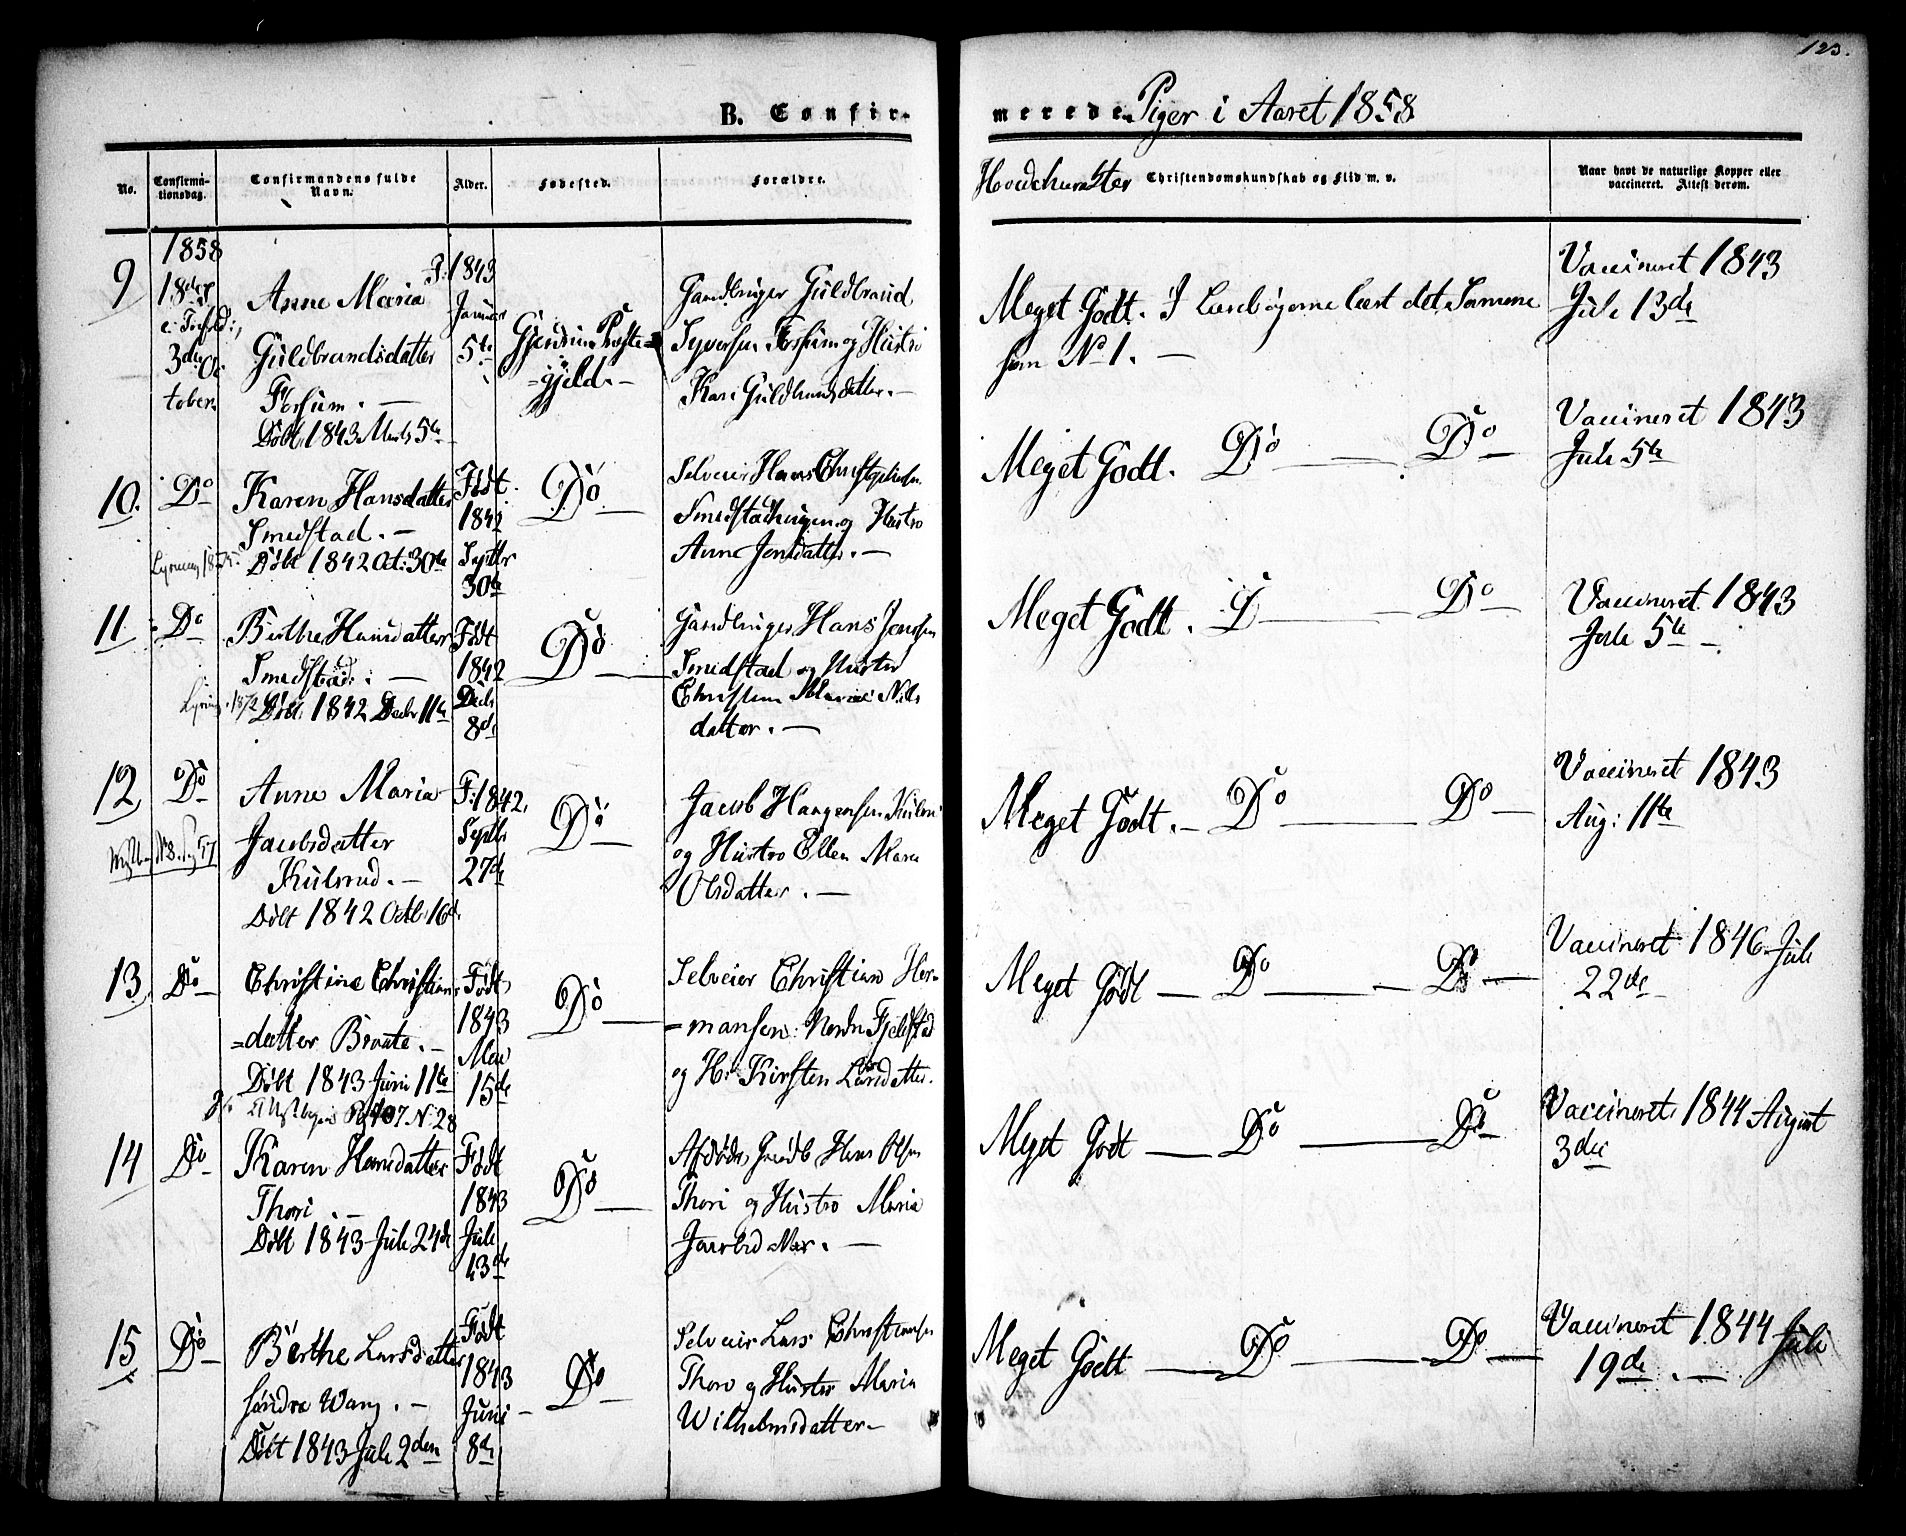 123.
B. Confirmerede Piger i Aaret 1858
No.
Confirmationsdag.
Confirmandens fulde Navn.
Alder.
Fødested.
Forældre.
Hovedcharakter
Christendomskundskab og Flid m. v.
Naar havt de naturlige Kopper eller vaccineret. Attest derom.
9
1858
3die Oc
tober.
Anne Maria
Guldbrandsdatter
Forsum. —
Døbt 1843 Marts 5te
F: 1843
Januar
5te
Gjerdrum Præste=
=gjeld. —
Gaardbruger Guldbrand
Syversen Forsum og Hustro
Kari Guldbrandsdatter. —
Meget Godt. I Lærebøgerne læst det Samme
som No 1. —
Vaccineret 1843
Juli 13de
10.
Do
Karen Hansdatter
Smedstad. —
Døbt 1842 Oct: 30te
Født
1842
Septbr
30te
Do —
Selveier Hans Christophersen
Smedstadengen og Hustro
Anne Jensdatter. —
Meget Godt. Do — Do —
Vaccineret 1843
Juli 5te
11.
Do
Berthe Hansdatter
Smedstad. —
Døbt 1842 Decbr 11te
Født
1842
Decbr
8de
Do —
Gaardbruger Hans Jensen
Smedstad og Hustro
Christine Marie Nils
datter. —
Meget Godt. D — Do —
Vaccineret 1843
Juli 5te —
12
Do
Anne Maria
Jacobsdatter
Kulsrud. —
Døbt 1842 Octb. 16de
F: 1842
Septbr
27de
Do —
Jacob Haagensen
og Hustro Ellen Marie
Olsdatter. —
Meget Godt. — Do — Do —
Vaccineret 1843
Aug: 11te
13
Do
Christine Christians
=datter Braate. —
Døbt 1843 Juni 11te
Pag 107. No 28
Født
1843
Mai
15de
Do —
Selveier Christian Her=
=mansen Nordre Fjeldstad
og H: Kirsten Larsdatter.
Meget Godt — Do — Do —
Vaccineret 1846 Juli
22de —
14
Do
Karen Hansdatter
Thori. —
Døbt 1843 Juli 24de
Født
1843
Juli
13de
Do —
Afdøde Gaardb. Hans Olsen
Thori og Hustro Maria
Jacobsdatter. —
Meget Godt — Do — Do —
Vaccineret 1844 August
3die
15
Do
Berthe Larsdatter
søndre Wang. —
Døbt 1843 Juli 2den
Født
1843
Juni
8de
Do —
Selveier Lars Christiansen
Thori og Hustro Maria
Wilhelmsdatter —
Meget Godt — Do — Do —
Vaccineret 1844 Juli
19de. —